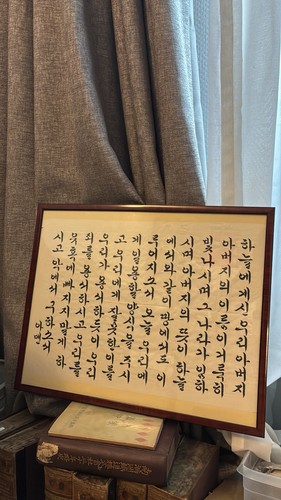 하늘에계신우리아버지
아버지의이름이거룩히
빛나시며그나라가임하
시며아버지의뜻이하늘
에서와같이땅에서도이
루어지소서오늘우리에
게일용할양식을주시
고우리에게잘못한이를
우리가용서하듯이우리
죄를용서하시고우리를
유혹에빠지지말게하
시고악에서구하소서
아멘